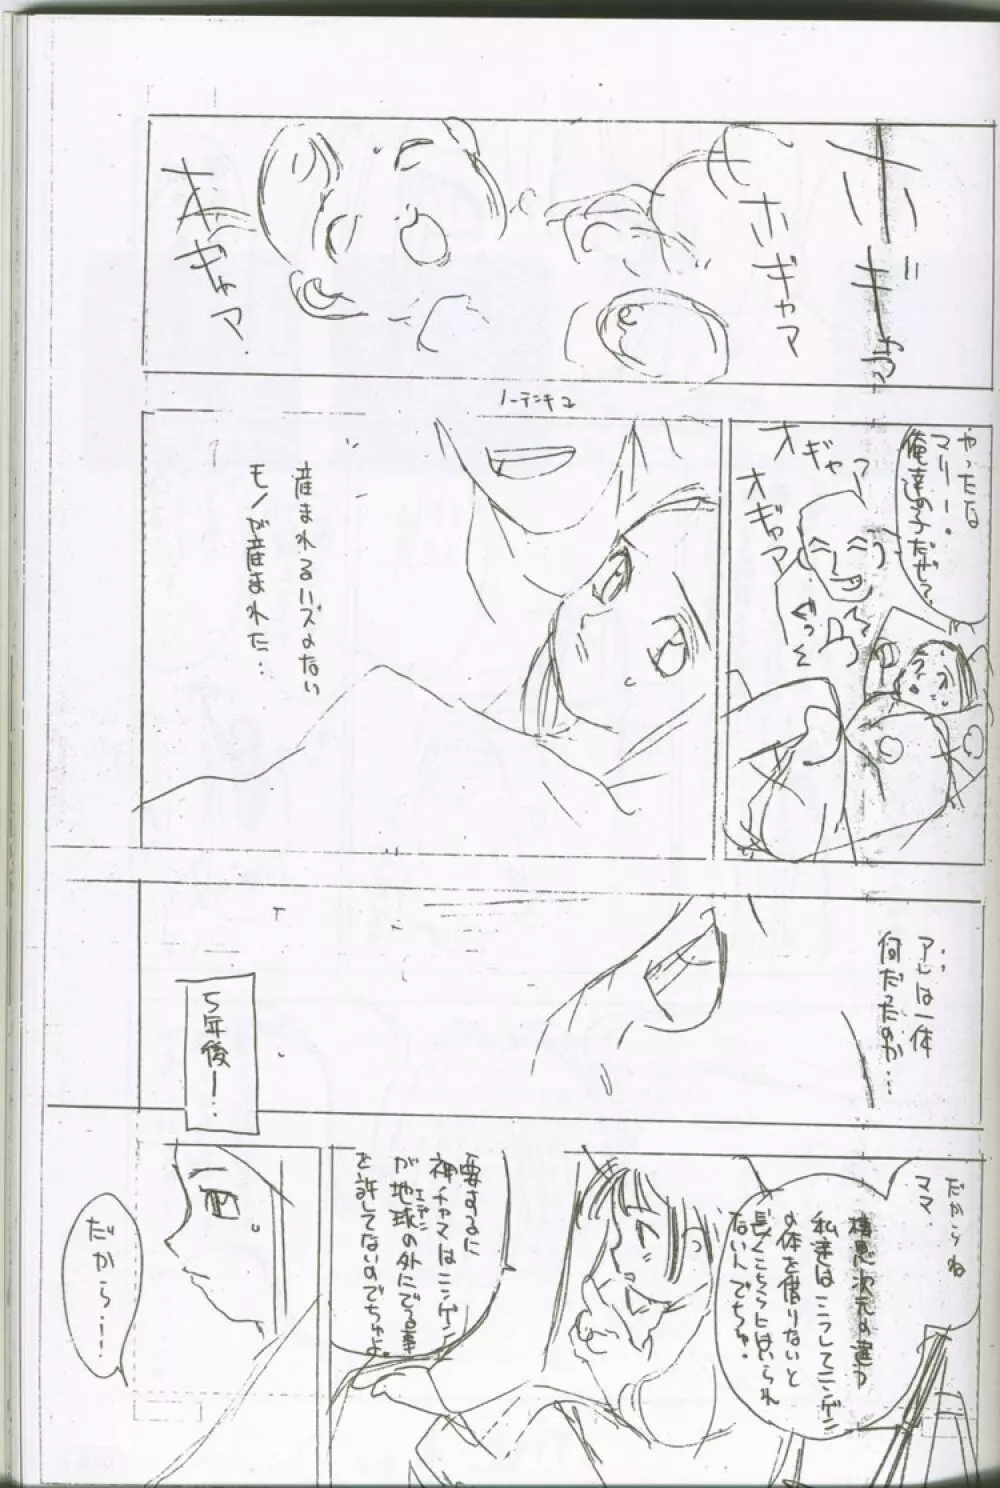 ホギャァ
ホギャア
オギャア
ノーテンキュ
やったな
マリー。
俺達の子だぜて
オギャア
オギャア
ぐっそ
産まれるハズのない
モノが産まれた…
アレは一体
何だったのか…
5年後ー！
だからね
ママ
次元の違う
私達はこうしてニンゲン
の体を借りないと
長くこっちにはいられ
ないんでちゅ。
要するに
神チャマはニンゲン
が地球の外にでる事
エデン
を許してないのでちゅよ。
だから…！